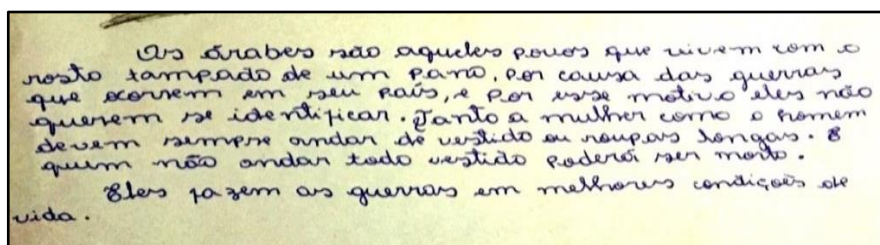 Os árabes são aqueles povos que vivem com o
rosto tampado de um pano, por causa das guerras
que ocorrem em seu país, e por esse motivo eles não
querem se identificar. Tanto a mulher como o homem
devem sempre andar de vestido ou roupas longas. E
quem não andar todo vestido poderá ser morto.
Eles fazem as guerras em melhores condições de
vida.